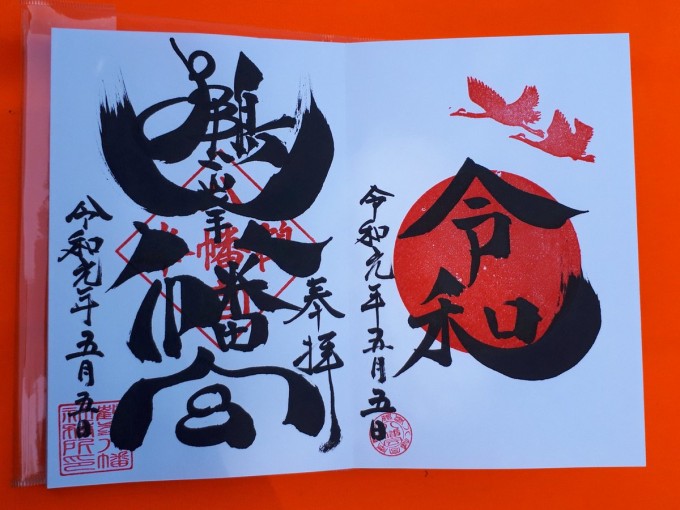 令和
令和元年五月五日
奉拝
鶴峯八幡宮
令和元年五月五日